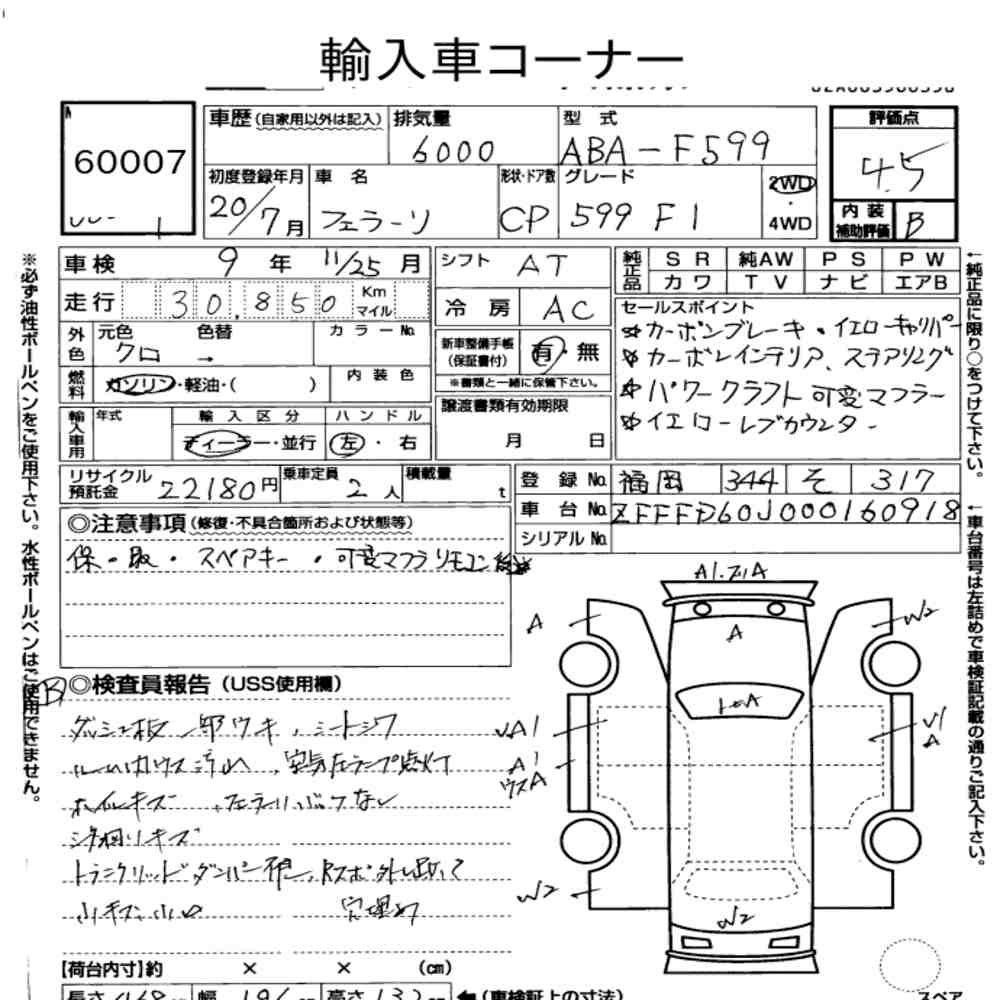 輸入車コーナー
60007
車歴 (自家用以外は記入)
排気量
6000
型式
ABA-F599
評価点
4.5
初度登録年月
20/7月
車名
フェラーリ
形状・ドア数
CP
グレード
599 F1
2WD
・
4WD
内装
補助評価
B
車検 9年 11/25月
走行 30,850 Km マイル
外色
元色 色替 カラーNo.
クロ →
燃料
ガソリン・軽油・( )
内装色
輸入車用
年式
輸入区分
ディーラー・並行
ハンドル
左・右
シフト AT
冷房 AC
新車整備手帳
(保証書付)
有・無
※書類と一緒に保管下さい。
譲渡書類有効期限
月 日
純正品
SR 純AW PS PW
カワ TV ナビ エアB
セールスポイント
☆カーボンブレーキ・イエローキャリパー
☆カーボンインテリア、ステアリング
☆パワークラフト可変マフラー
☆イエローレブカウンター
リサイクル
預託金
22180円
乗車定員
2人
積載量
t
登録No. 福岡 344 そ 317
車台No. ZFFFD60J000160918
シリアルNo.
◎注意事項 (修復・不具合箇所および状態等)
保・取・スペアキー・可変マフラリモコン
◎検査員報告 (USS使用欄)
B
ダッシュ板一部ウキ、シートシワ
ホイルキズ、フェラーリバッケなし
小キズ、小凹
穴埋め
A
A
W2
A1
A
ウスA
W2
W2
【荷台内寸】約 × × (cm)
長さ 幅 高さ ←(車検証上の寸法)
スペア
※必ず油性ボールペンをご使用下さい。水性ボールペンはご使用できません。
←純正品に限り○をつけて下さい。
←車台番号は左詰めで車検証記載の通りご記入下さい。